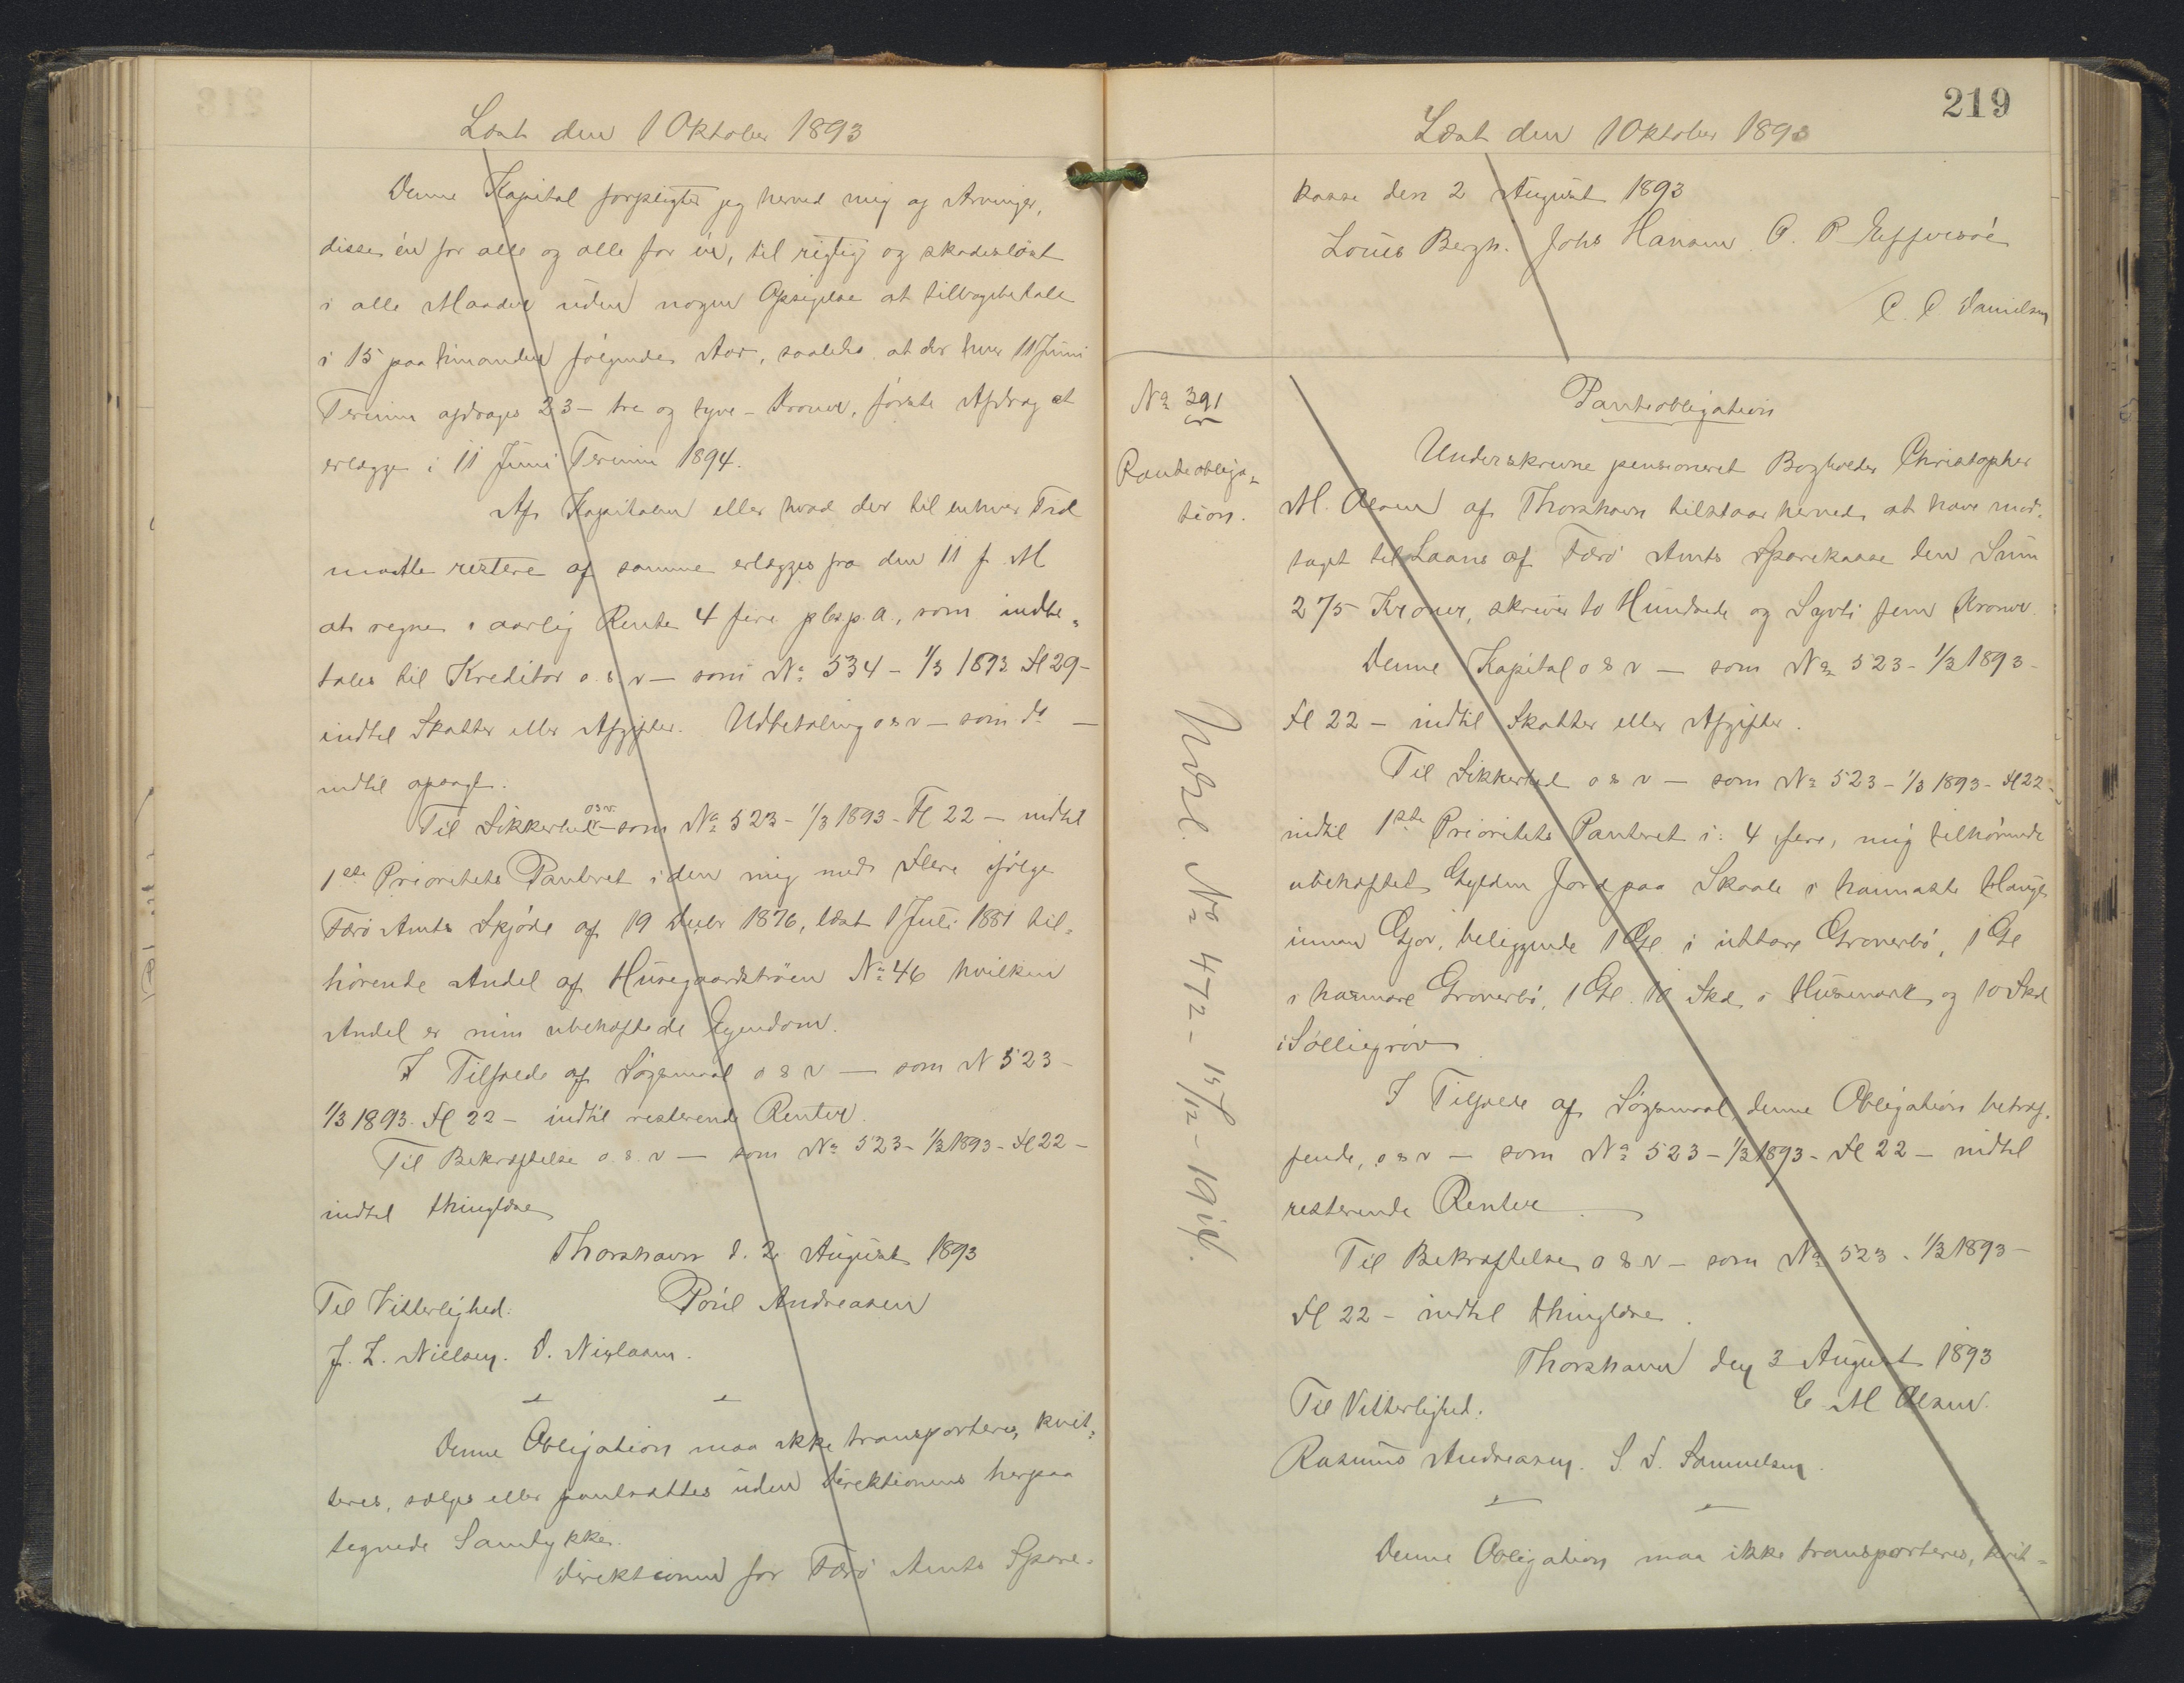 Læst den 1 Oktober 1893
Denne Kapital forpligter jeg herved mig og Arvinger,
disse én for alle og alle for én, til rigtig og skadesløst
i alle Maader uden nogen Opsigelse at tilbagebetale
i 15 paa hinanden følgende Aar, saaledes at der hver 11 Juni
Termin afdrages 23 - tre og tyve - Kroner, første Afdrag at
erlægge i 11 Juni Termin 1894.
Af Kapitalen eller hvad der til enhver Tid
maatte restere af samme erlægges fra den 11 f. M
at regne i aarlig Rente 4 fire pCt. p. a., som indbe-
tales til Kreditor o. s. v - som No 534 - 1/3 1893 Fl 29 -
indtil Skatter eller Afgifter. Udbetaling o s v - som do -
indtil opsagt.
Til Sikkerhed o s v - som No 523 - 1/3 1893 - Fl 22 - indtil
1ste Prioritets Panteret i den mig med Flere ifølge
Færø Amts Skjøde af 19 Decbr 1876, læst 1 Juli 1881 til-
hørende Andel af Husegaardstrøen No 46 hvilken
Andel er min ubehæftede Ejendom.
I Tilfælde af Søgsmaal o s v - som N 523 -
1/3 1893. Fl 22 - indtil resterende Renter.
Til Bekræftelse o. s. v - som No 523 - 1/3 1893 - Fl 22 -
indtil thinglæse
Thorshavn d. 2 August 1893
Til Vitterlighed. Poul Andreasen
J. Z. Nielsen. D. Niclasen.
Denne Obligation maa ikke transporteres, kvit-
teres, sælges eller pantsættes uden Direktionens herpaa
tegnede Samtykke.
Direktionen for Færø Amts Spare-
219
Læst den 1 Oktober 1893
kasse den 2 August 1893
Louis Bergh. Johs Hansen. O. P. Effersøe
C. C. Danielsen
No 391
Panteobliga-
tion.
Panteobligation
Underskrevne pensioneret Bogholder Christopher
M. Olsen af Thorshavn tilstaar herved at have mod-
taget til Laans af Færø Amts Sparekasse den Sum
275 Kroner, skriver to Hundrede og Syvti fem Kroner.
Denne Kapital o s v - som No 523 - 1/3 1893 -
Fl 22 - indtil Skatter eller Afgifter.
Til Sikkerhed o s v - som No 523 - 1/3 1893 - Fl 22 -
indtil 1ste Prioritets Panteret i: 4 fire, mig tilhørende
ubehæftet Gylden Jord paa Skaale i hannaste Hauge
innan Gjor, beliggende 1 Gl i uttare Groverbø, 1 Gl
i harmare Groverbø, 1 Gl. 10 Skd i Husemark og 10 Skd
i Sølliegrøv
I Tilfælde af Søgsmaal denne Obligation betræf-
fende, o s v - som No 523 - 1/3 1893 - Fl 22 - indtil
resterende Renter.
Til Bekræftelse o s v - som No 523 - 1/3 1893 -
Fl 22 - indtil thinglæse.
Thorshavn den 3 August 1893
Til Vitterlighed. C. M Olsen.
Rasmus Andreasen. S. S. Samuelsen.
Denne Obligation maa ikke transporteres, kvit-
Udsl. No 472 - 15/12 - 19